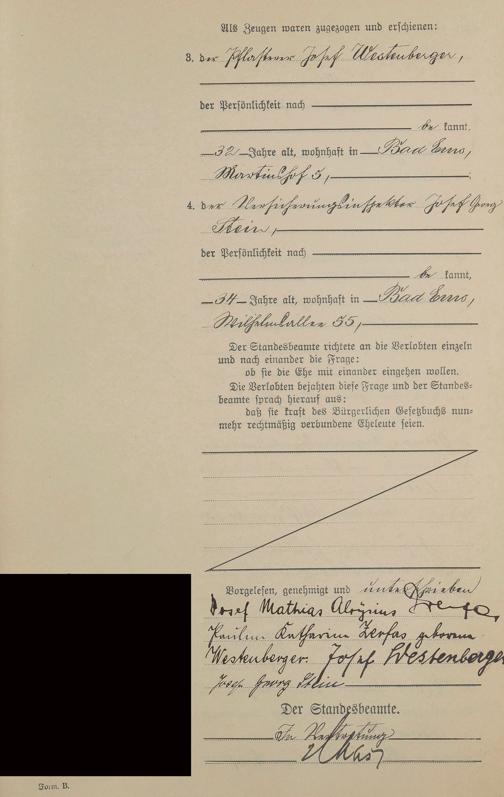 Als Zeugen waren zugezogen und erschienen:
3. der Pflasterer Josef Westenberger,
der Persönlichkeit nach
be kannt,
32 Jahre alt, wohnhaft in Bad Ems,
Martinshof 5,
4. der Versicherungsinspektor Josef Georg
Stein,
der Persönlichkeit nach
be kannt,
34 Jahre alt, wohnhaft in Bad Ems,
Wilhelmsallee 55,
Der Standesbeamte richtete an die Verlobten einzeln
und nach einander die Frage:
ob sie die Ehe mit einander eingehen wollen.
Die Verlobten bejahten diese Frage und der Standes-
beamte sprach hierauf aus:
daß sie kraft des Bürgerlichen Gesetzbuchs nun-
mehr rechtmäßig verbundene Eheleute seien.
Vorgelesen, genehmigt und unterschrieben
Josef Mathias Aloysius Zerfas
Pauline Katharina Zerfas geborene
Westenberger. Josef Westenberger
Josef Georg Stein
Der Standesbeamte.
In Vertretung
Form. B.